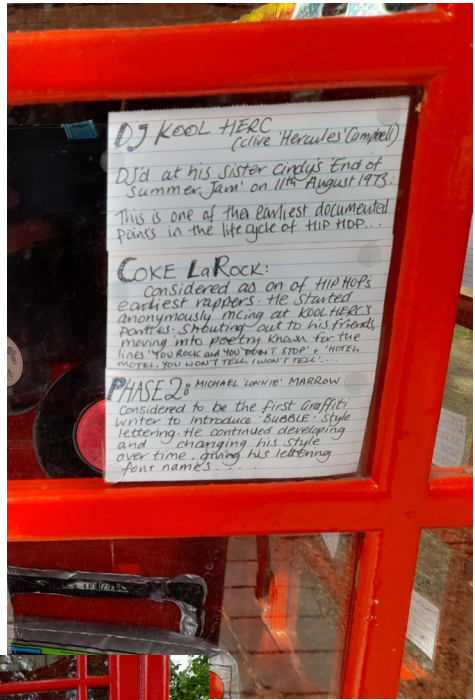 DJ KOOL HERC
(clive 'Hercules' Campbell)
DJ'd at his sister cindy's 'End of
Summer Jam' on 11th August 1973.
This is one of the earliest documented
points in the life cycle of HIP HOP...
COKE LaROCK:
considered as on of HIP HOP's
earliest rappers. He started
anonymously mcing at KOOL HERC'S
parties. Shouting out to his friends,
moving into poetry. Known for the
lines 'YOU ROCK and YOU DON'T STOP' + 'HOTEL,
MOTEL, YOU WON'T TELL, I WON'T TELL'....
PHASE 2: MICHAEL 'LONNIE' MARROW
considered to be the first Graffiti
writer to introduce 'BUBBLE' style
lettering. He continued developing
and changing his style
over time, giving his lettering
font names....